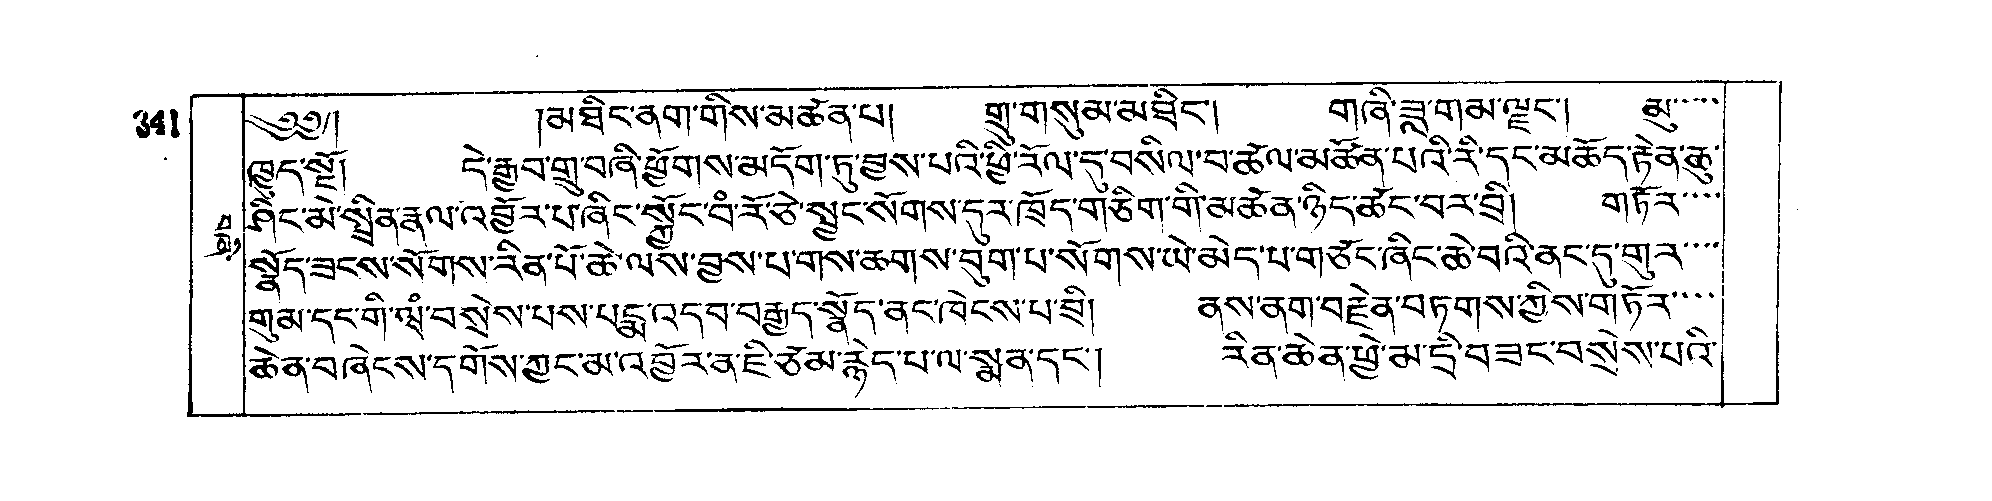 341
༄༅། །མཐིང་ནག་གིས་མཚན་པ། གྲུ་གསུམ་མཐིང་། གཞི་ཟླ་གམ་ལྗང་། མུ་་་་་
ཁྱུད་སྔོ། དེ་རྒྱབ་གྲུ་བཞི་ཕྱོགས་མདོག་ཏུ་བྱས་པའི་ཕྱི་རོལ་དུ་བསིལ་བ་ཚལ་མཚོན་པའི་རི་དང་མཆོད་རྟེན་ཆུ་
ཤིང་མེ་སྤྲིན་རྣལ་འབྱོར་པ་ཞིང་སྐྱོང་བཾ་རོ་ཙེ་སྤྱང་སོགས་དུར་ཁྲོད་གཅིག་གི་མཚན་ཉིད་ཚང་བར་བྲི། གཏོར་་་་
སྣོད་ཟངས་སོགས་རིན་པོ་ཆེ་ལས་བྱས་པ་གས་ཆགས་བུག་པ་སོགས་ཡེ་མེད་པ་གཙང་ཞིང་ཆེ་བའི་ནང་དུ་གུར་་་་
གུམ་དང་གི་ཝཾ་བསྲེས་པས་པདྨ་འདབ་བརྒྱད་སྣོད་ནང་ཁེངས་པ་བྲི། ནས་ནག་བརྔེན་བཏགས་ཀྱིས་གཏོར་་་་
ཆེན་བཞེངས་དགོས་ཀྱང་མ་འབྱོར་ན་ཇི་ཙམ་རྙེད་པ་ལ་སྨན་དང་། རིན་ཆེན་ཕྱེ་མ་དྲི་བཟང་བསྲེས་པའི་